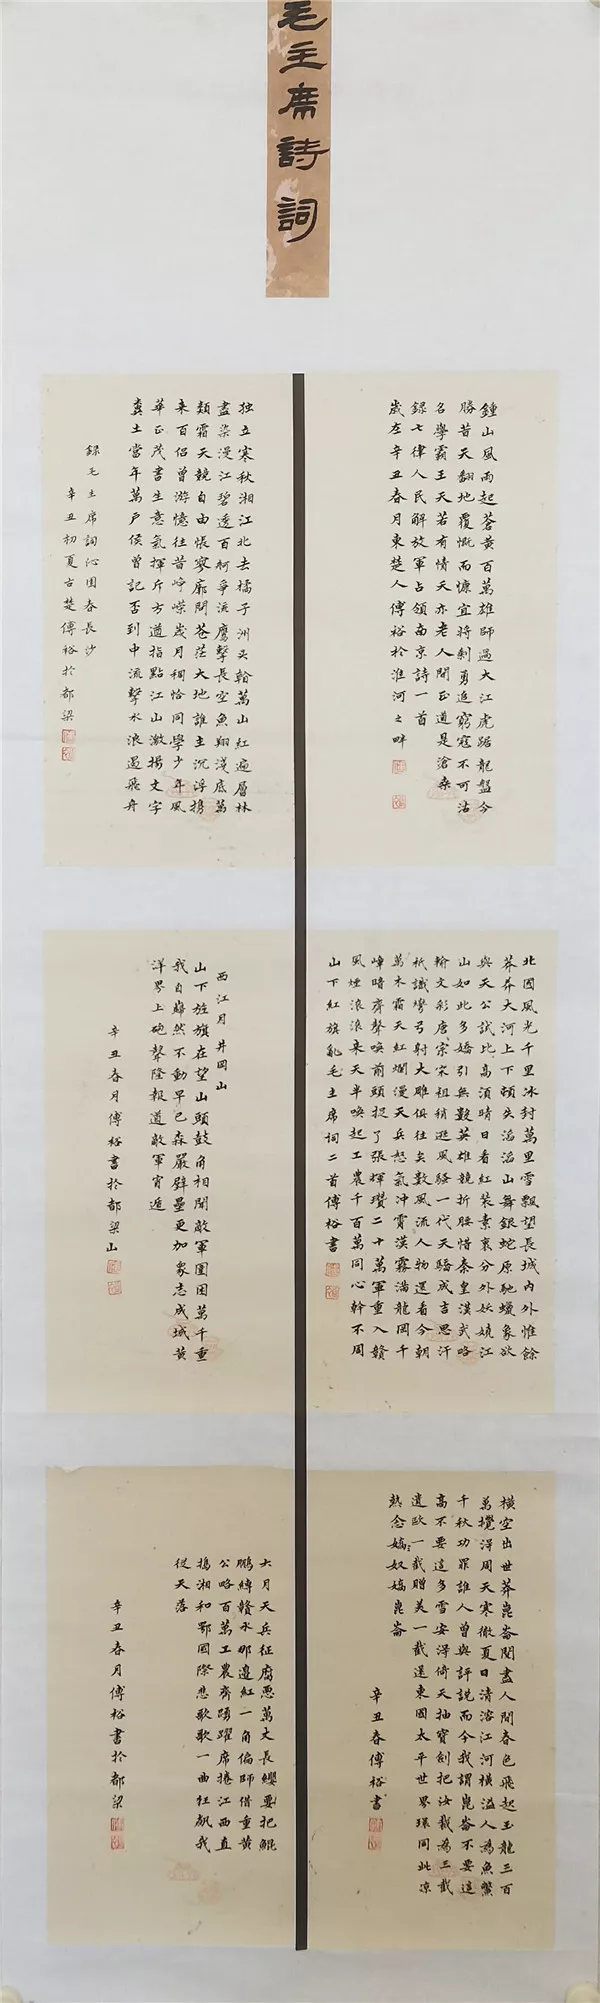 毛主席詩詞
鍾山風雨起蒼黃百萬雄師過大江虎踞龍盤今
勝昔天翻地覆慨而慷宜將剩勇追窮寇不可沽
名學霸王天若有情天亦老人間正道是滄桑
録七律人民解放軍占領南京詩一首
歲在辛丑春月東楚人傅裕於淮河之畔
独立寒秋湘江北去橘子洲头看萬山紅遍層林
盡染漫江碧透百柯爭流鷹擊長空魚翔淺底萬
類霜天競自由悵寥廓問苍茫大地誰主沉浮攜
来百侣曾游憶往昔崢嶸歲月稠恰同學少年風
華正茂書生意氣揮斥方遒指點江山激揚文字
糞土當年萬戶侯曾記否到中流擊水浪遏飛舟
録毛主席詞沁園春長沙
辛丑初夏古楚傅裕於都梁
北國風光千里冰封萬里雪飄望長城內外惟餘
莽莽大河上下頓失滔滔山舞銀蛇原馳蠟象欲
與天公試比高須晴日看紅裝素裹分外妖嬈江
山如此多嬌引無數英雄競折腰惜秦皇漢武略
輸文彩唐宗宋祖稍遜風騷一代天驕成吉思汗
祇識彎弓射大雕俱往矣數風流人物還看今朝
萬木霜天紅爛漫天兵怒氣沖霄漢霧滿龍岡千
嶂暗齊聲喚前頭捉了張輝瓚二十萬軍重入贛
風煙滾滾来天半喚起工農千百萬同心幹不周
山下紅旗亂毛主席詞二首傅裕書
西江月井岡山
山下旌旗在望山頭鼓角相聞敵軍圍困萬千重
我自巋然不動早已森嚴壁壘更加衆志成城黄
洋界上砲聲隆報道敵軍宵遁
辛丑春月傅裕書於都梁山
橫空出世莽崑崙閱盡人間春色飛起玉龍三百
萬攪得周天寒徹夏日清溶江河橫溢人為魚鱉
千秋功罪誰人曾與評說而今我謂崑崙不要這
高不要這多雪安得倚天抽寶劍把汝裁為三截
遺歐一截贈美一截還東國太平世界環同此凉
熱念嬌奴嬌崑崙
辛丑春傅裕書
六月天兵征腐惡萬丈長纓要把鯤
鵬縛贛水那邊紅一角偏師借重黄
公略百萬工農齊踴躍席捲江西直
搗湘和鄂國際悲歌歌一曲狂飆我
從天落
辛丑春月傅裕書於都梁